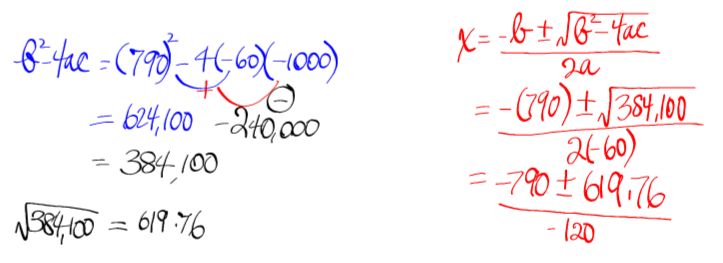 b²-4ac = (790)² - 4(-60)(-1000)
+ −
= 624,100 - 240,000
= 384,100
√384,100 = 619.76
x = -b ± √b²-4ac / 2a
= -(790) ± √384,100 / 2(-60)
= -790 ± 619.76 / -120